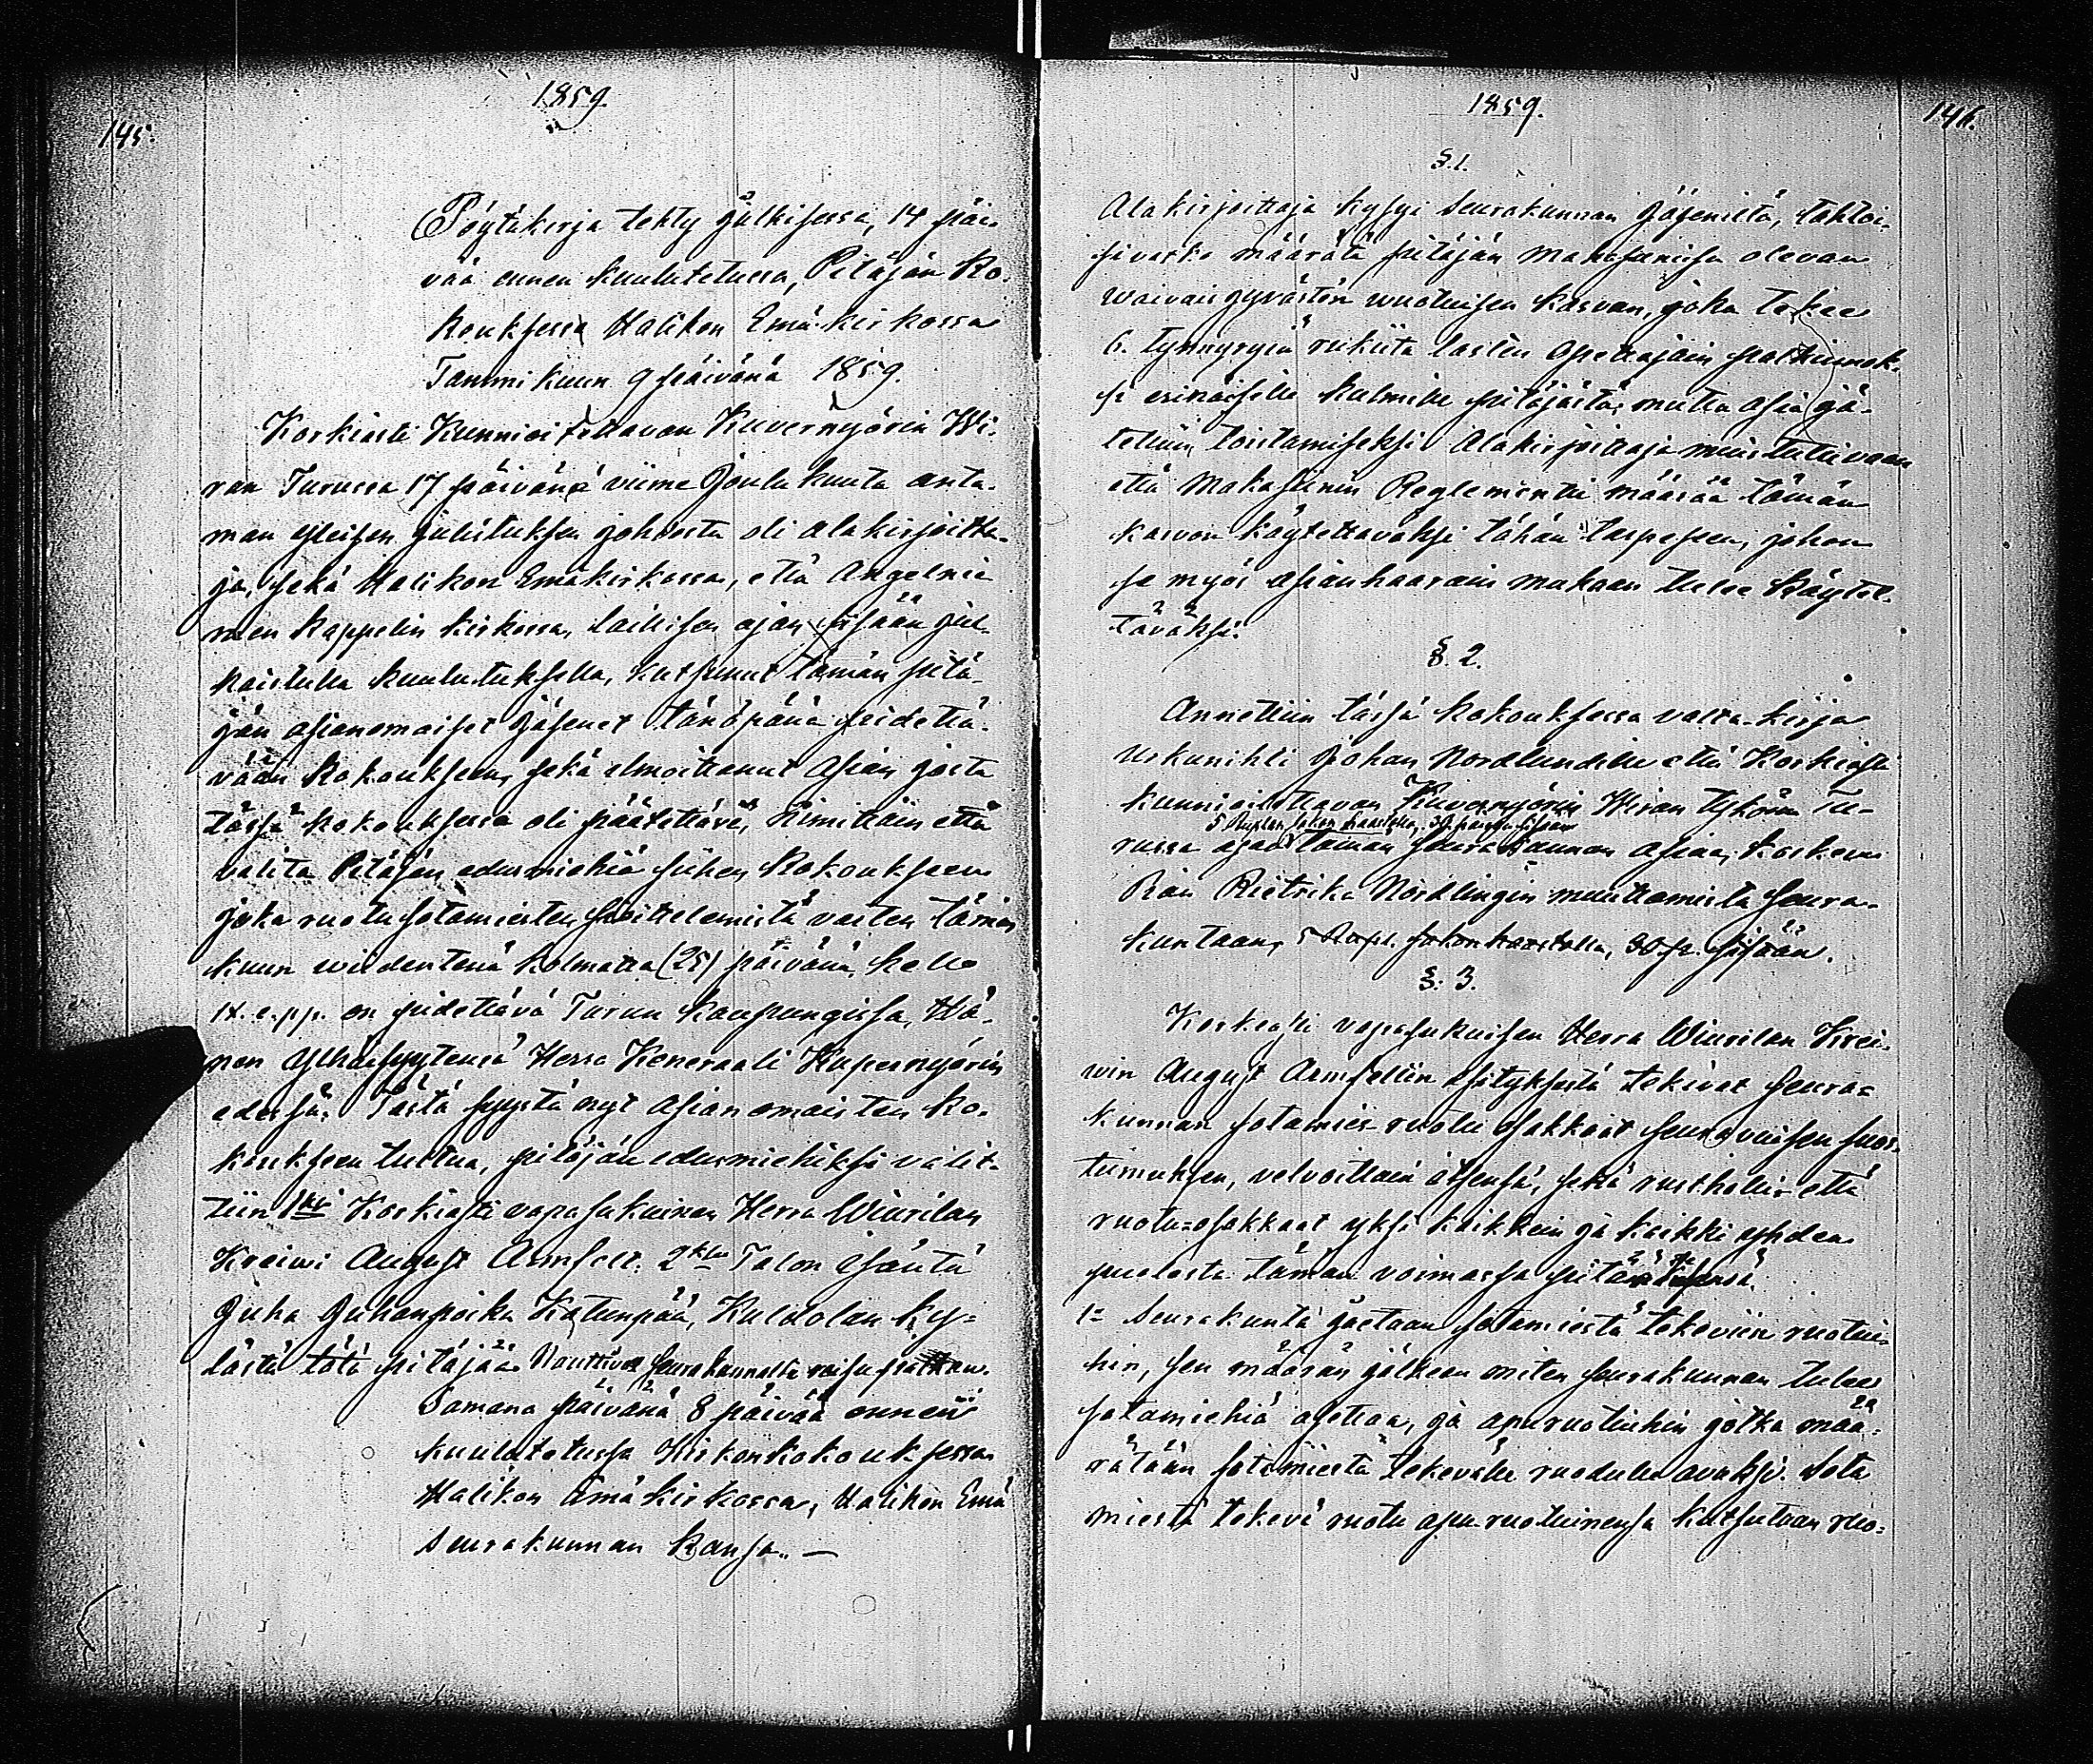 1859.
145.
Pöytäkirja tehty julkisessa, 14 päi-
vää ennen kuulutetussa, Pitäjän Ko-
kouksessa Halikon Emäkirkossa
Tammikuun 9 päivänä 1859.
Korkiasti Kunnioitettavan Kuvernyörin Wi-
ran Turussa 17 päivänä viime Joulukuuta anta-
man yleisen julistuksen johdosta oli alakirjoitta-
ja, sekä Halikon Emäkirkossa, että Angelnie-
men kappelin kirkossa, laillisen ajan sisään jul-
kaistulla kuulutuksella, kutsunut tämän pitä-
jän asianomaiset jäsenet tänäpänä pidettä-
vään Kokoukseen, sekä ilmoittanut asian josta
tässä kokouksessa oli päätettävä, nimittäin että
valita Pitäjän edusmiehiä siihen Kokoukseen
joka ruotusotamiesten asettelemista varten tämän
kuun viidentenä kolmatta (25) päivänä, kello
IX. e.p.p. on pidettävä Turun kaupungissa, Hä-
nen Ylhäisyytensä Herra Keneraali Kupernyörin
edessä. Tästä syystä nyt asianomaisten ko-
koukseen tultua, pitäjän edusmiehiksi valit-
tiin 1ksi Korkiasti vapasukuinen Herra Wiurilan
Kreiwi August Armfelt. 2ksi Talon isäntä
Juha Juhanpoika Katunpää, Kuldolan ky-
lästä tätä pitäjää. Nauttivat seurakunnalta
Samana päivänä 8 päivää ennen
kuulutetussa Kirkonkokouksessa
Halikon Ämäkirkossa, Halikon Emä
seurakunnan kansa. —
1859.
146.
§. 1.
Alakirjoittaja kysyi Seurakunnan jäseniltä, tahtoi-
sivatko määrätä pitäjän Makasiinissa olevan
waivaisjyvästön vuotuisen kasvun, joka tekee
6. tynnyryiä rukiita lasten opettajain palkinnok-
si erinäisille kulmille pitäjästä; mutta asia jä-
tettiin toistamiseksi. Alakirjoittaja muistutti vaan
että Makasiinin Reglementti määrää tämän
kasvon käytettäväksi tähän tarpeseen, johon
se myös asianhaarain mukaan tulee käytet-
täväksi.
§. 2.
Annettiin tässä kokouksessa valta-kirja
Urkunihti Johan Nordlundille että Korkiasti
kunnioitettavan Kuvernyörin Wiran tykönä Tu-
5 Ruplan sakon haastolla, 30 päivän sisään
russa ajaa tämän seurakunnan asiaa, koskeva
Piän Rietrika Nordlingin muuttamista Seura-
kuntaan, 5 Rupl. sakonhaastolla, 30 p. sisään.
§. 3.
Korkeasti vapasukuisen Herra Wiurilan Krei-
win August Armfeltin esityksestä tekivät Seura-
kunnan sotamies-ruotu osakkaat seuravaisen suos-
tumuksen, velvoittain itsensä, sekä rusthollin- että
ruotu-osakkaat yksi kaikkein ja kaikki yhden
puolesta tämän voimassa pitämään.
1- Seurakunta jaetaan sotamiestä tekeviin ruotui-
hin, sen määrän jälkeen miten seurakunnan tulee
sotamiehiä asettaa, ja apuruotuihin jotka mää-
rätään sotamiestä tekevälle ruodulle avuksi. Sota
miestä tekevä ruotu apu-ruotuinensa kutsutaan ruo-